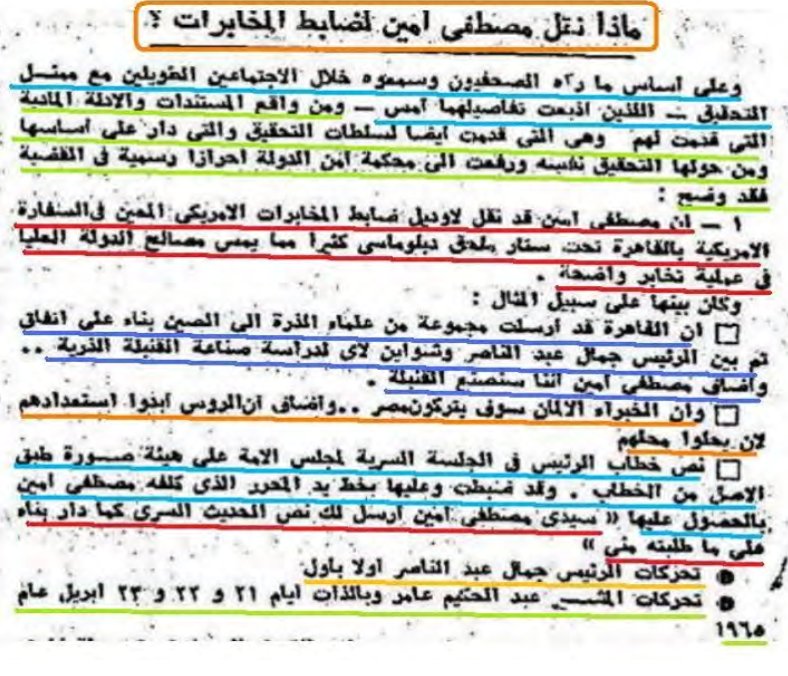 ماذا نقل مصطفى امين لضابط المخابرات ؟
وعلى اساس ما رآه الصحفيون وسمعوه خلال الاجتماعين الطويلين مع ممثل
التحقيق ــ اللذين اذيعت تفاصيلهما امس ــ ومن واقع المستندات والادلة المادية
التى قدمت لهم وهى التى قدمت ايضا لسلطات التحقيق والتى دار على اساسها
ومن حولها التحقيق نفسه ورفعت الى محكمة امن الدولة احرازا رسمية فى القضية
فقد وضح :
١ ــ ان مصطفى امين قد نقل لاوديل ضابط المخابرات الامريكى المعين فى السفارة
الامريكية بالقاهرة تحت ستار ملحق دبلوماسى كثيرا مما يمس مصالح الدولة العليا
فى عملية تخابر واضحة .
وكان بينها على سبيل المثال :
□ ان القاهرة قد ارسلت مجموعة من علماء الذرة الى الصين بناء على اتفاق
تم بين الرئيس جمال عبد الناصر وشواين لاى لدراسة صناعة القنبلة الذرية ..
واضاف مصطفى امين اننا سنصنع القنبلة .
□ وان الخبراء الالمان سوف يتركون مصر .. واضاف ان الروس ابدوا استعدادهم
لان يحلوا محلهم
□ نص خطاب الرئيس فى الجلسة السرية لمجلس الامة على هيئة صورة طبق
الاصل من الخطاب . وقد ضبطت وعليها بخط يد المحرر الذى كلفه مصطفى امين
بالحصول عليها « سيدى مصطفى امين ارسل لك نص الحديث السرى كما دار بناء
على ما طلبته منى »
● تحركات الرئيس جمال عبد الناصر اولا باول
● تحركات المشير عبد الحكيم عامر وبالذات ايام ٢١ و ٢٢ و ٢٣ ابريل عام
١٩٦٥